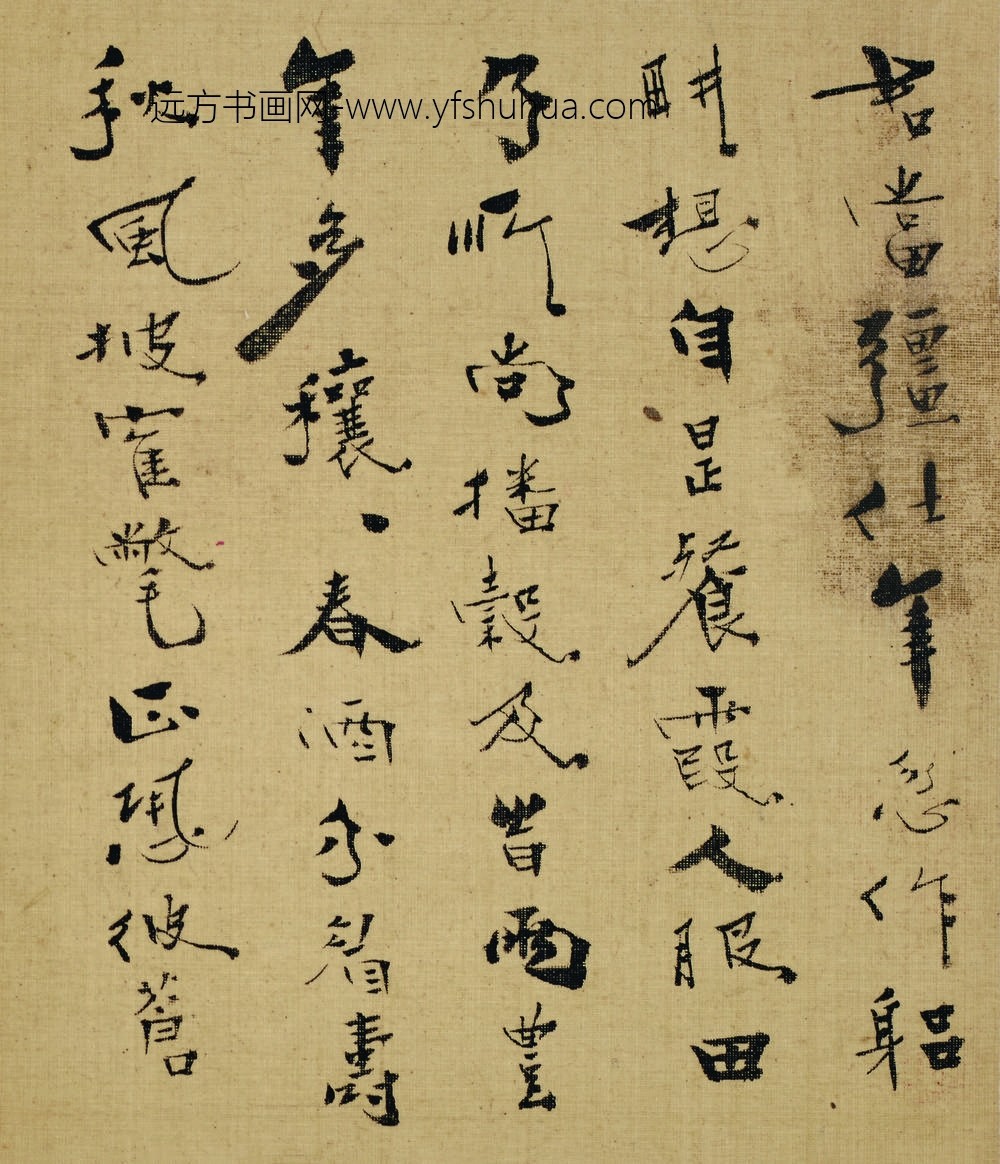 君當彊仕年忽作躳
耕想自是餐霞人服田
乃所尚播穀及昔雨豐
年多穰、春酒介眉壽
秋風披
鶴氅正恐彼舊
远方书画网-www.yfshuhua.com